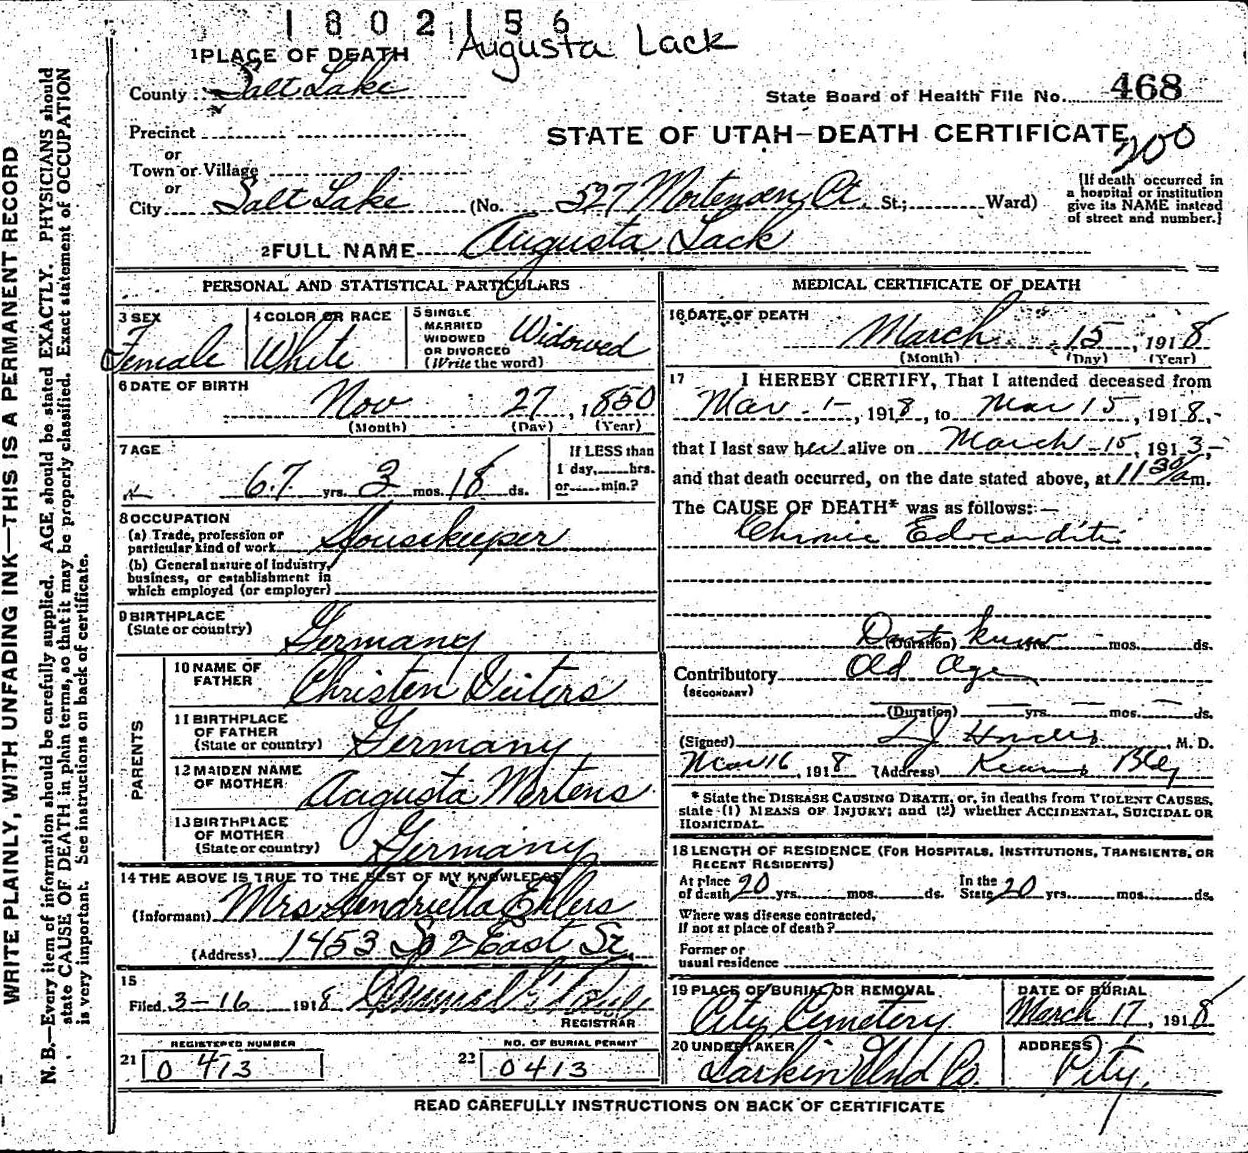 1802156
Augusta Lack
1 PLACE OF DEATH
County Salt Lake
State Board of Health File No. 468
Precinct
STATE OF UTAH—DEATH CERTIFICATE
200
or
Town or Village
or
City Salt Lake (No. 527 Mortensen Ct. St.; Ward)
[If death occurred in
a hospital or institution
give its NAME instead
of street and number.]
2 FULL NAME Augusta Lack
PERSONAL AND STATISTICAL PARTICULARS
3 SEX
Female
4 COLOR OR RACE
White
5 SINGLE
MARRIED
WIDOWED
OR DIVORCED
(Write the word)
Widowed
6 DATE OF BIRTH
Nov 27, 1850
(Month) (Day) (Year)
7 AGE
67 yrs. 3 mos. 18 ds.
If LESS than
1 day, hrs.
or min.?
8 OCCUPATION
(a) Trade, profession or
particular kind of work Housekeeper
(b) General nature of industry,
business, or establishment in
which employed (or employer)
9 BIRTHPLACE
(State or country) Germany
PARENTS
10 NAME OF
FATHER Christen
11 BIRTHPLACE
OF FATHER
(State or country) Germany
12 MAIDEN NAME
OF MOTHER Augusta Mertens
13 BIRTHPLACE
OF MOTHER
(State or country) Germany
14 THE ABOVE IS TRUE TO THE BEST OF MY KNOWLEDGE
(Informant) Mrs Hendrietta Ehlers
(Address) 1453 So 2 East St.
15
Filed 3-16 1918
REGISTRAR
21 REGISTERED NUMBER
0 473
22 NO. OF BURIAL PERMIT
0413
MEDICAL CERTIFICATE OF DEATH
16 DATE OF DEATH
March 15, 1918
(Month) (Day) (Year)
17 I HEREBY CERTIFY, That I attended deceased from
Mar. 1-, 1918, to Mar 15, 1918,
that I last saw her alive on March 15, 1913,
and that death occurred, on the date stated above, at 11 30/a m.
The CAUSE OF DEATH* was as follows:—
Chronic
Dont know
(Duration) yrs. mos. ds.
Contributory Old Age
(SECONDARY)
(Duration) yrs. mos. ds.
(Signed) M. D.
Mar 16, 1918 (Address) Kearns Bldg
* State the DISEASE CAUSING DEATH, or, in deaths from VIOLENT CAUSES,
state (1) MEANS OF INJURY; and (2) whether ACCIDENTAL, SUICIDAL OR
HOMICIDAL.
18 LENGTH OF RESIDENCE (FOR HOSPITALS, INSTITUTIONS, TRANSIENTS, OR
RECENT RESIDENTS)
At place
of death 20 yrs. mos. ds.
In the
State 20 yrs. mos. ds.
Where was disease contracted,
if not at place of death?
Former or
usual residence
19 PLACE OF BURIAL OR REMOVAL
City Cemetery
DATE OF BURIAL
March 17, 1918
20 UNDERTAKER
Larkin Und Co.
ADDRESS
City.
READ CAREFULLY INSTRUCTIONS ON BACK OF CERTIFICATE
WRITE PLAINLY, WITH UNFADING INK—THIS IS A PERMANENT RECORD
N. B.—Every item of information should be carefully supplied. AGE should be stated EXACTLY. PHYSICIANS should
state CAUSE OF DEATH in plain terms, so that it may be properly classified. Exact statement of OCCUPATION
is very important. See instructions on back of certificate.